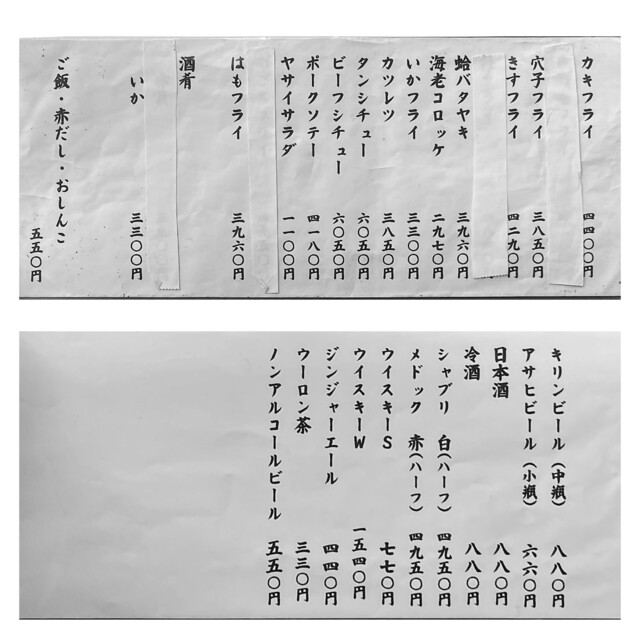 カキフライ 四四〇〇円
穴子フライ 三八五〇円
きすフライ 四二九〇円
蛤バタヤキ 三九六〇円
海老コロッケ 二九七〇円
いかフライ 三三〇〇円
カツレツ 三八五〇円
タンシチュー 六〇五〇円
ビーフシチュー 六〇五〇円
ポークソテー 四一八〇円
ヤサイサラダ 一一〇〇円
はもフライ 三九六〇円
酒肴
いか 三三〇〇円
ご飯・赤だし・おしんこ 五五〇円
キリンビール(中瓶) 八八〇円
アサヒビール(小瓶) 六六〇円
日本酒 八八〇円
冷酒 八八〇円
シャブリ 白(ハーフ) 四九五〇円
メドック 赤(ハーフ) 四九五〇円
ウイスキーS 七七〇円
ウイスキーW 一五四〇円
ジンジャーエール 四四〇円
ウーロン茶 三三〇円
ノンアルコールビール 五五〇円